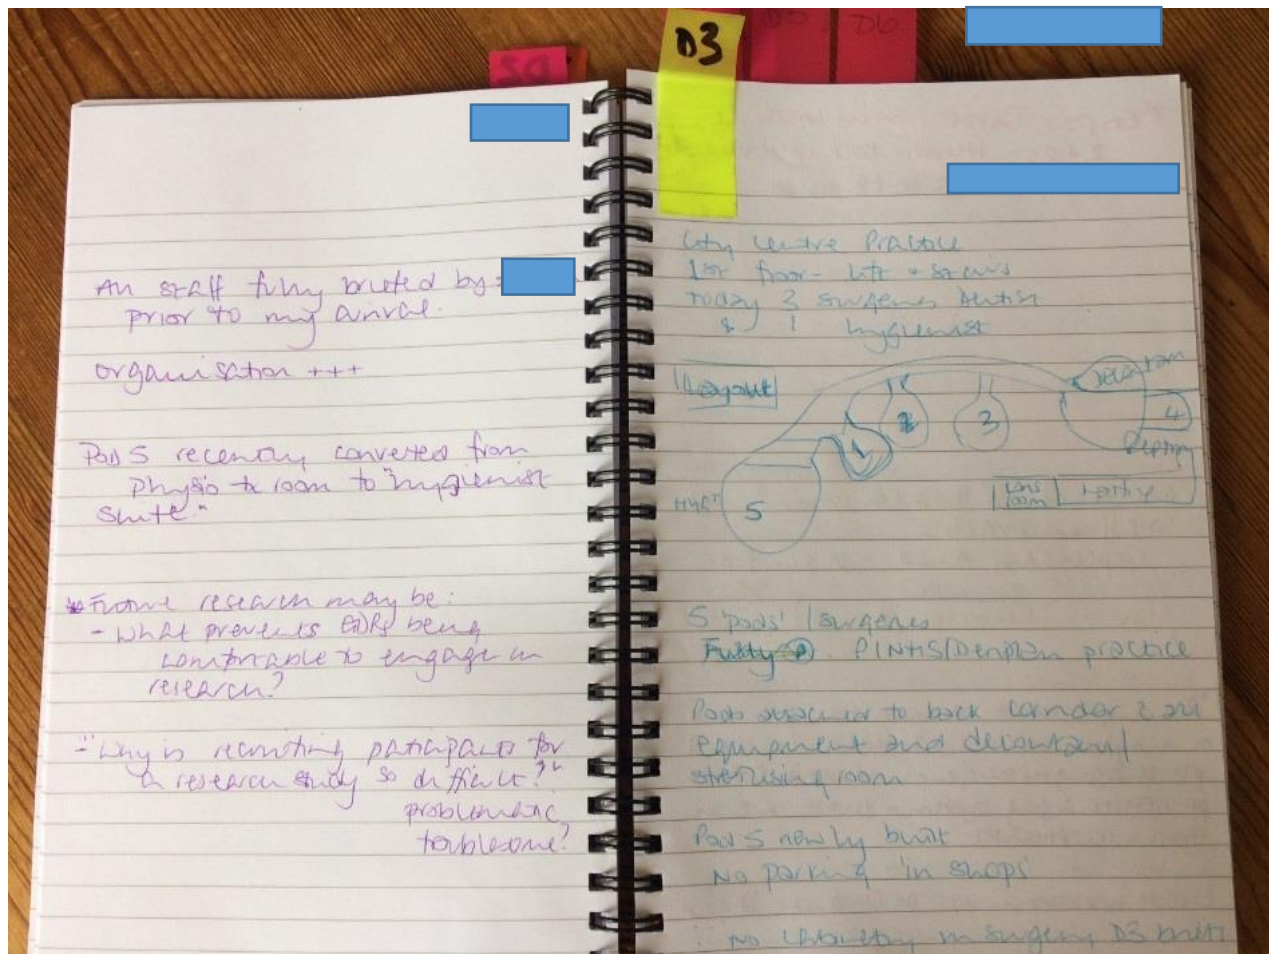 SQ
D3
D5
D6
All staff fully briefed by
prior to my arrival.
organisation +++
Pod 5 recently converted from
physio tx room to "hygienist
suite."
Future research may be:
- What prevents GDPs being
comfortable to engage in
research?
- "Why is recruiting participants for
a research study so difficult?"
problematic,
troublesome?
City Centre Practice
1st floor - lift & stairs
Today 3 surgeries dentist
& 1 hygienist
Layout
Decontam
1
2
3
4
Reception
5
Cons
room
5 'pods' / surgeries
Fully P. P/NHS/Denplan practice
Pods attached to back corridor c all
equipment and decontam/
sterilising room
Pod 5 newly built
No parking 'in shops'
No in surgery, D3